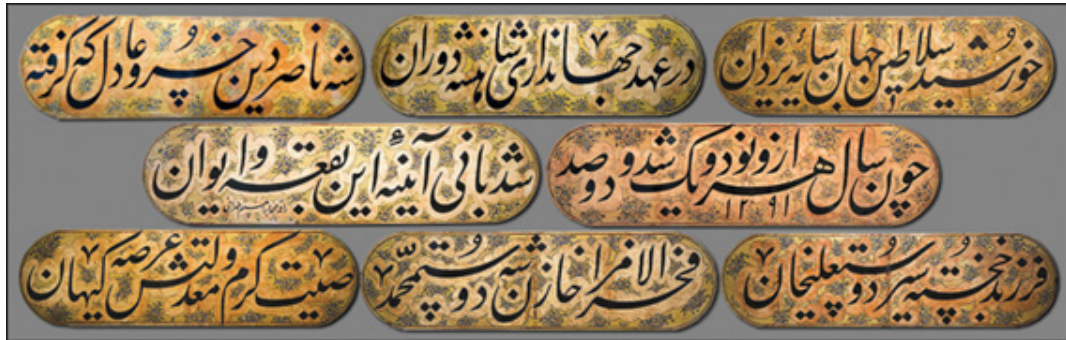 خورشید سلاطین جهان سایهٔ یزدان
در عهد جهانداری شاهنشه دوران
شه ناصر دین خسرو عادل که گرفته
چون سال هزار و نود و یک شد و دو صد
۱۲۹۱
شد بانی آئینهٔ این بقعه و ایوان
فرزند خجسته سیر دوستعلیخان
فخر الامرا خازن شه دوستمحمّد
صیت کرم و معدلتش عرصه کیهان